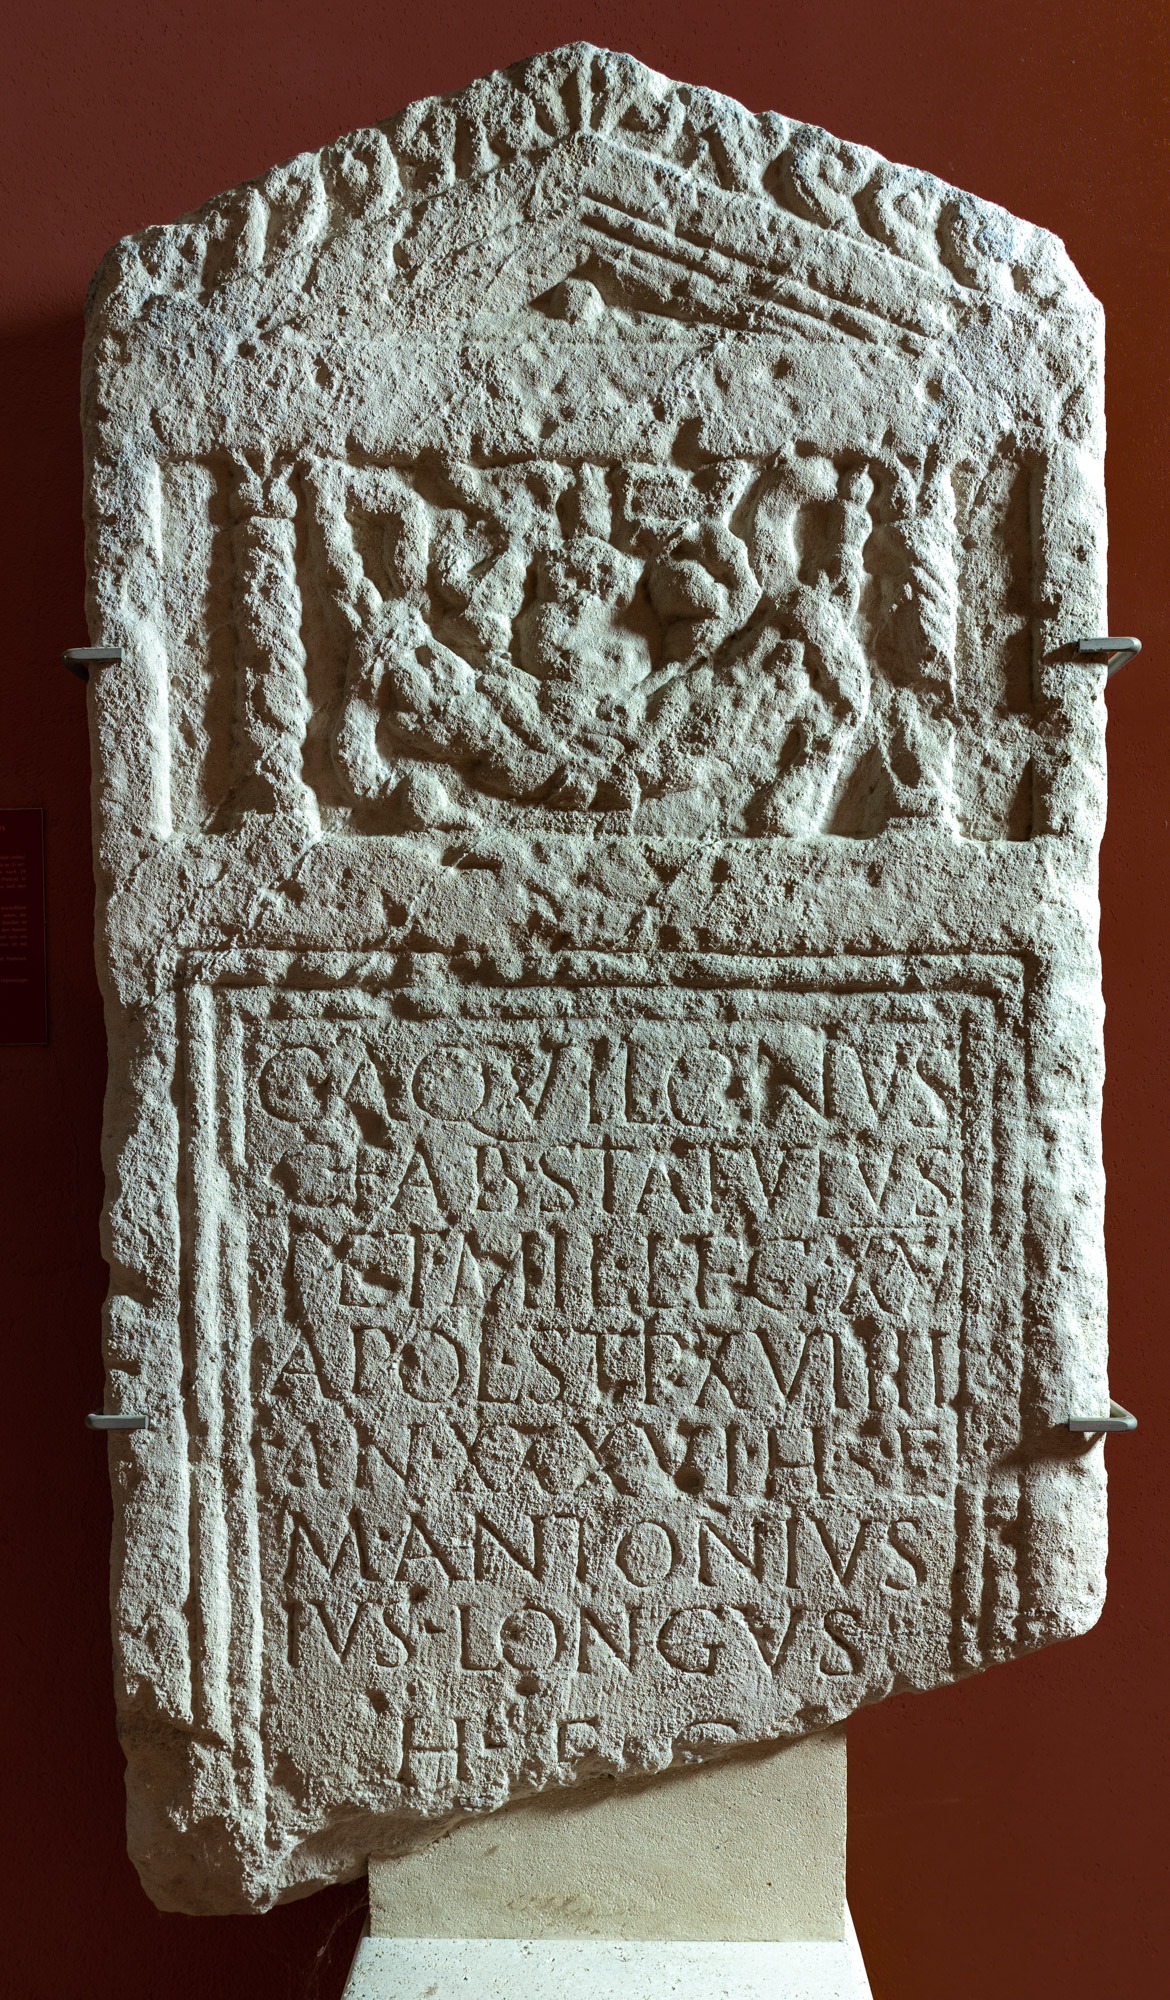 C AQVILONIVS
C F ARB STATVTVS
VET MIL LEG XV
APOL STP XVIIII
AN XXXVI H S E
M ANTONIVS
IVS LONGVS
H F C